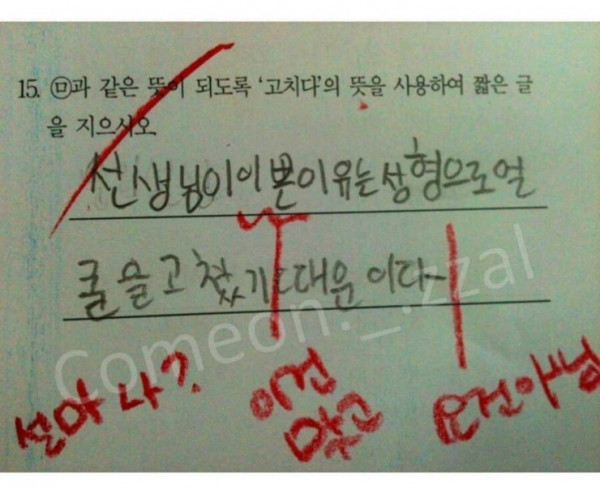 15. ㉤과 같은 뜻이 되도록 '고치다'의 뜻을 사용하여 짧은 글
을 지으시오.
선생님이이쁜이유는성형으로얼
굴을고쳤기때문이다~
설마 나?
이건
맞고
요건아님
Comeon._.zzal